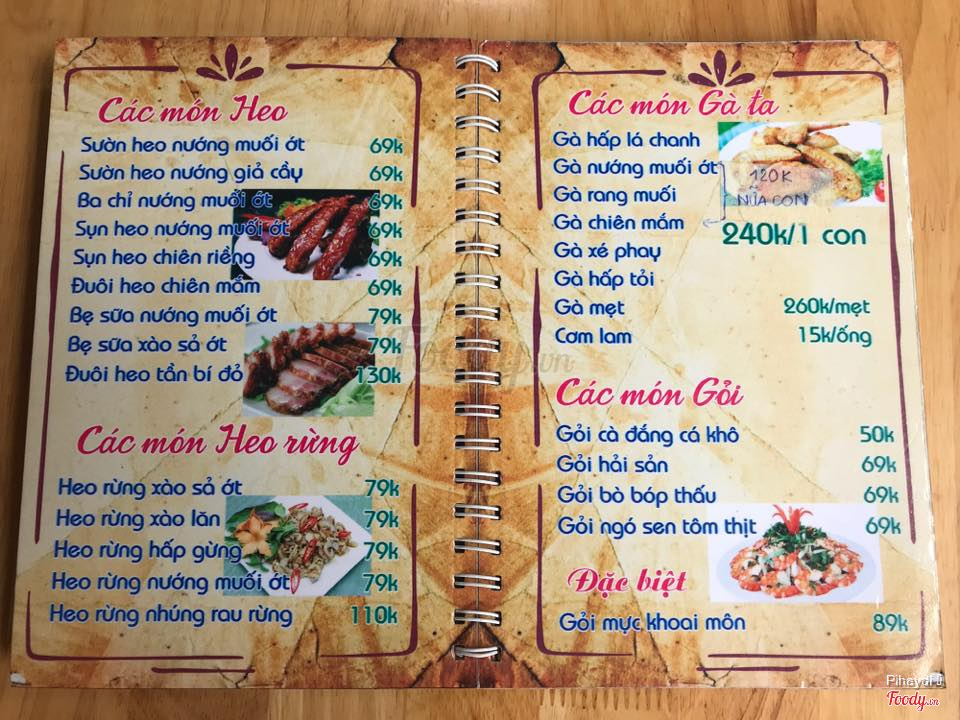 Các món Heo
Sườn heo nướng muối ớt 69k
Sườn heo nướng giả cầy 69k
Ba chỉ nướng muối ớt 69k
Sụn heo nướng muối ớt 69k
Sụn heo chiên riềng 69k
Đuôi heo chiên mắm 69k
Bẹ sữa nướng muối ớt 79k
Bẹ sữa xào sả ớt 79k
Đuôi heo tần bí đỏ 130k
Các món Heo rừng
Heo rừng xào sả ớt 79k
Heo rừng xào lăn 79k
Heo rừng hấp gừng 79k
Heo rừng nướng muối ớt 79k
Heo rừng nhúng rau rừng 110k
Các món Gà ta
Gà hấp lá chanh
Gà nướng muối ớt 120K
Gà rang muối NỮA CON
Gà chiên mắm 240k/1 con
Gà xé phay
Gà hấp tỏi
Gà mẹt 260k/mẹt
Cơm lam 15k/ống
Các món Gỏi
Gỏi cà đắng cá khô 50k
Gỏi hải sản 69k
Gỏi bò bóp thấu 69k
Gỏi ngó sen tôm thịt 69k
Đặc biệt
Gỏi mực khoai môn 89k
Foody.vn